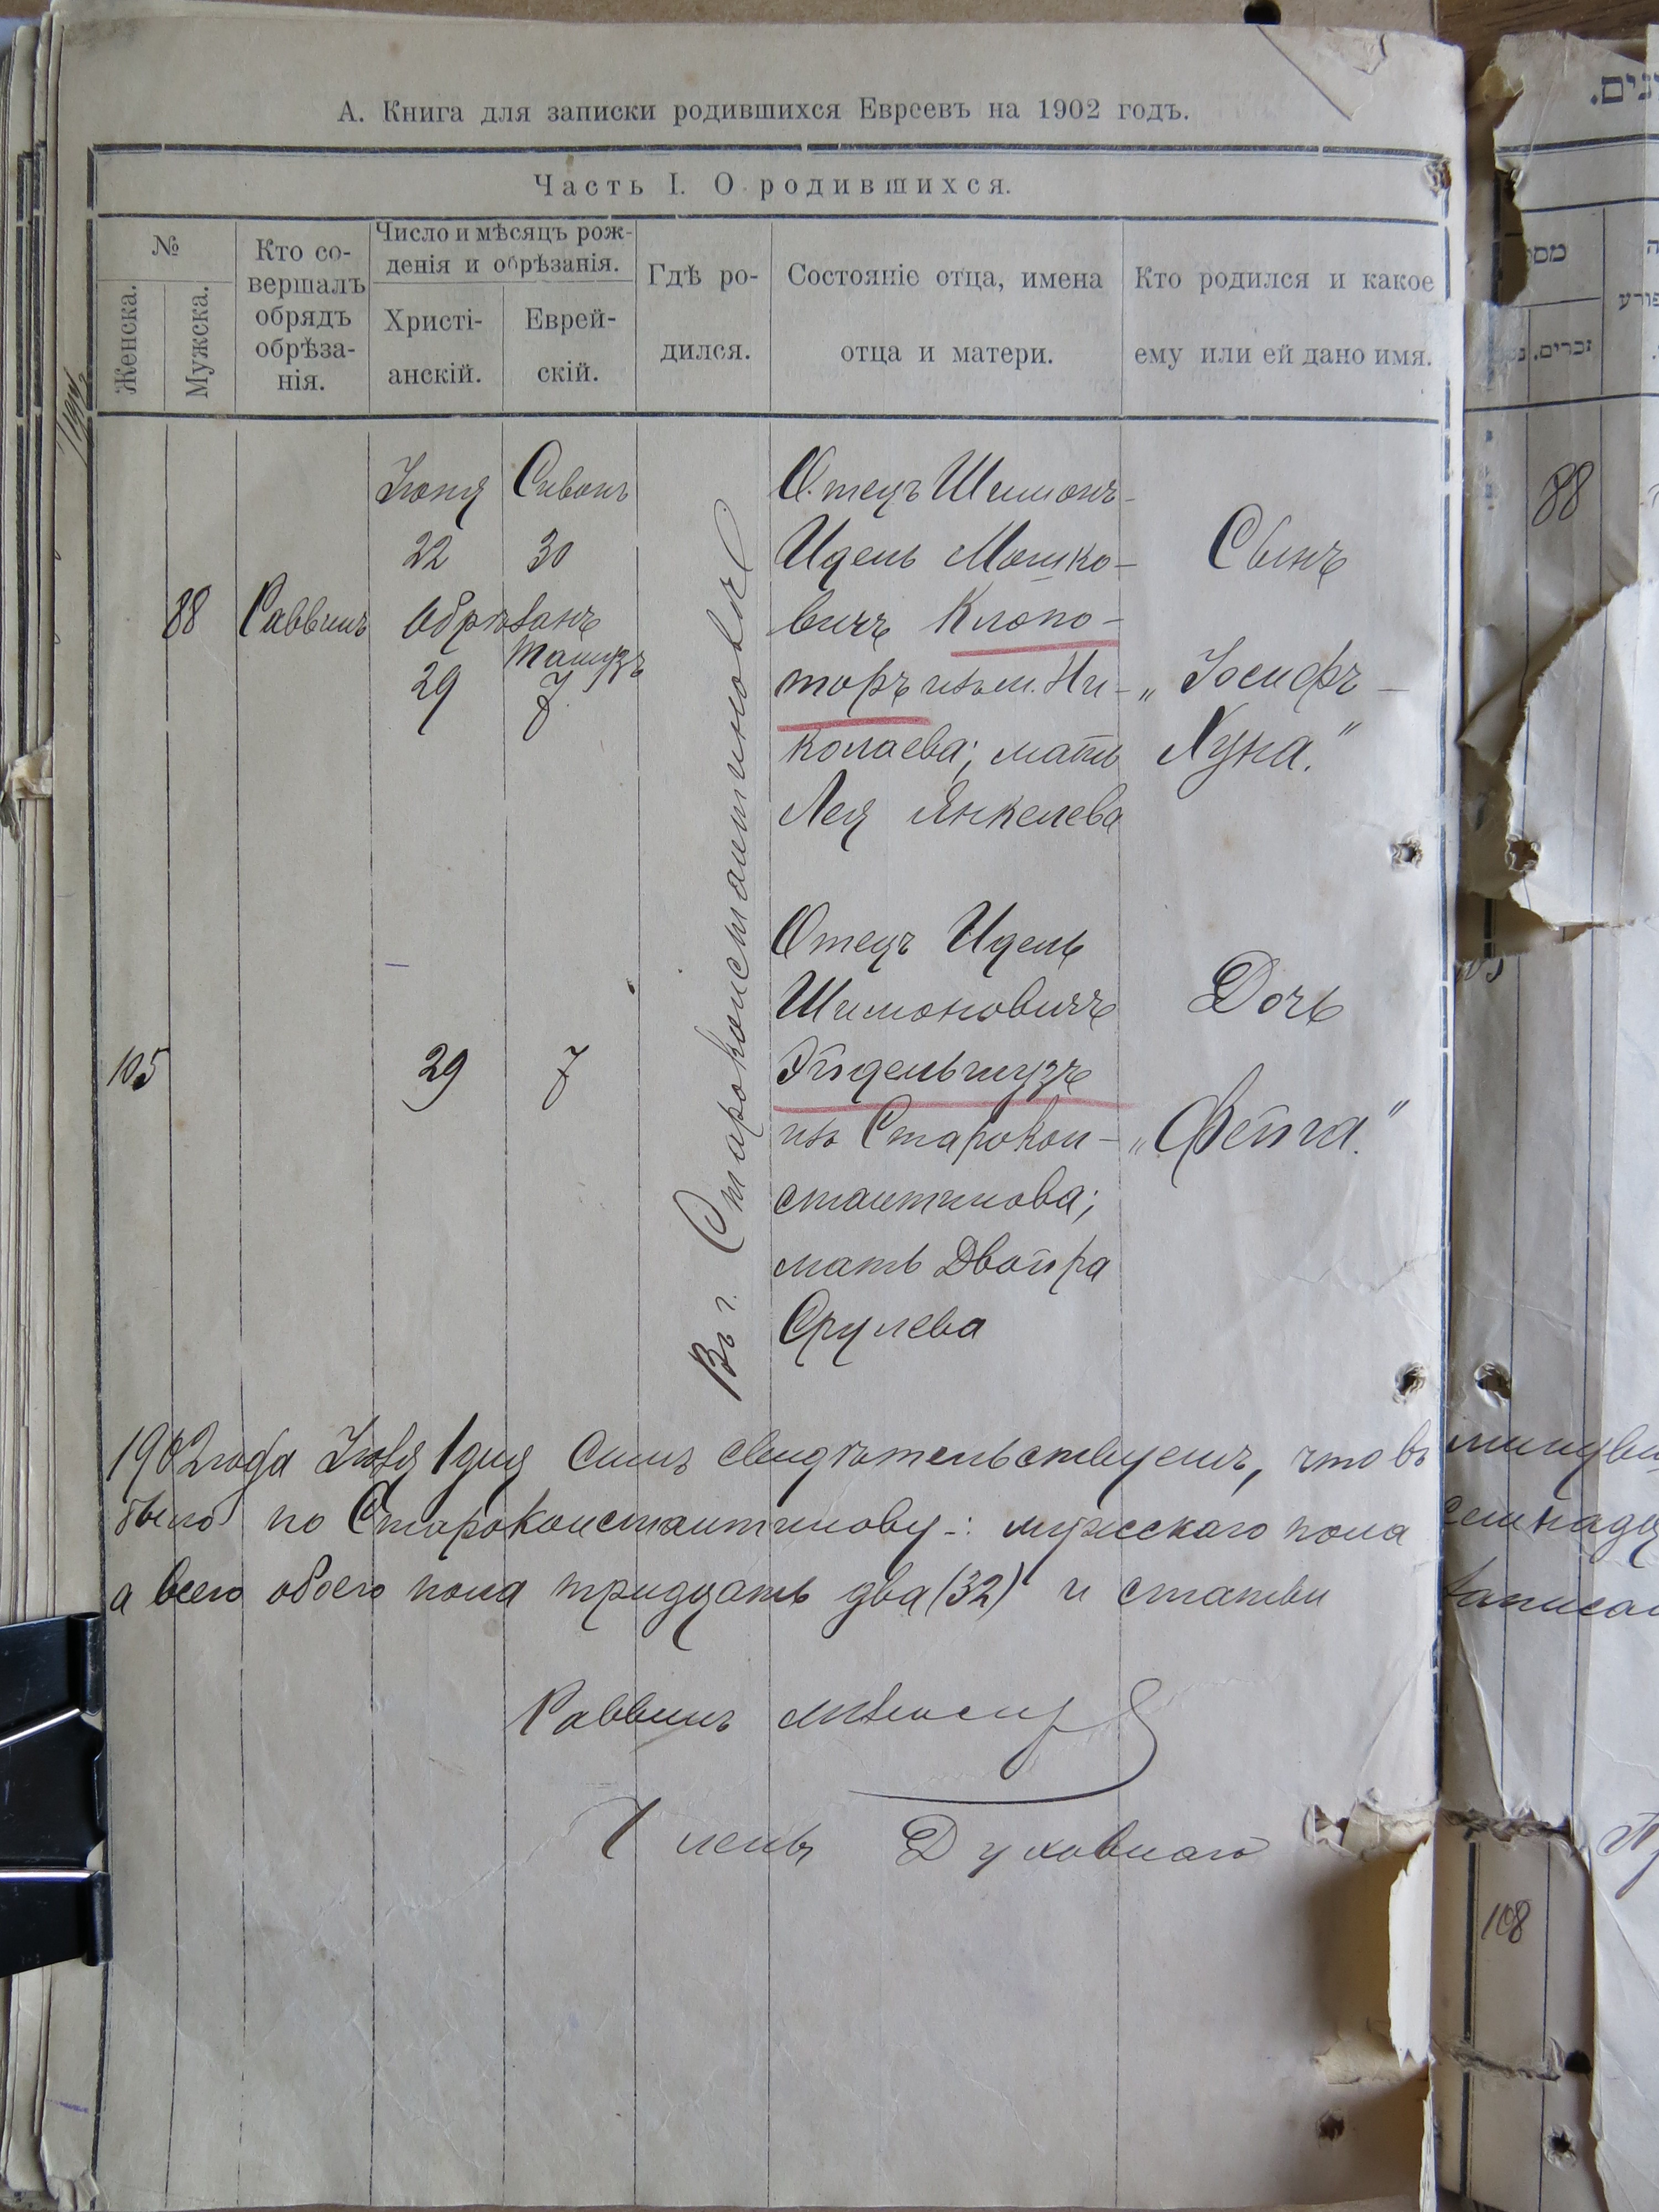 А. Книга для записки родившихся Евреевъ на 1902 годъ.
Часть I. О родившихся.
№
Женска.
Мужска.
Кто со-
вершалъ
обрядъ
обрѣза-
нія.
Число и мѣсяцъ рож-
денія и обрѣзанія.
Христі-
анскій.
Еврей-
скій.
Гдѣ ро-
дился.
Состояніе отца, имена
отца и матери.
Кто родился и какое
ему или ей дано имя.
88
Раввинъ
Іюня
22
Сиванъ
30
Обрѣзанъ
29
Тамузъ
7
Въ г. Староконстантиновѣ
Отецъ Шимонъ-
Идель Мошко-
вичъ Клопо-
торъ изъ м. Ни-
колаева; мать
Лея Янкелева
Сынъ
„Іосифъ-
Хуна."
105
29
7
Отецъ Идель
Шимоновичъ
изъ Старокон-
стантинова;
мать Двойра
Срулева
Дочь
„Фейга."
1902 года Іюля 1 дня Симъ свидѣтельствуемъ, что въ
было по Староконстантинову: мужскаго пола
а всего обоего пола тридцать два (32) и статьи
Раввинъ
Членъ Духовнаго
88
108
זכרים.